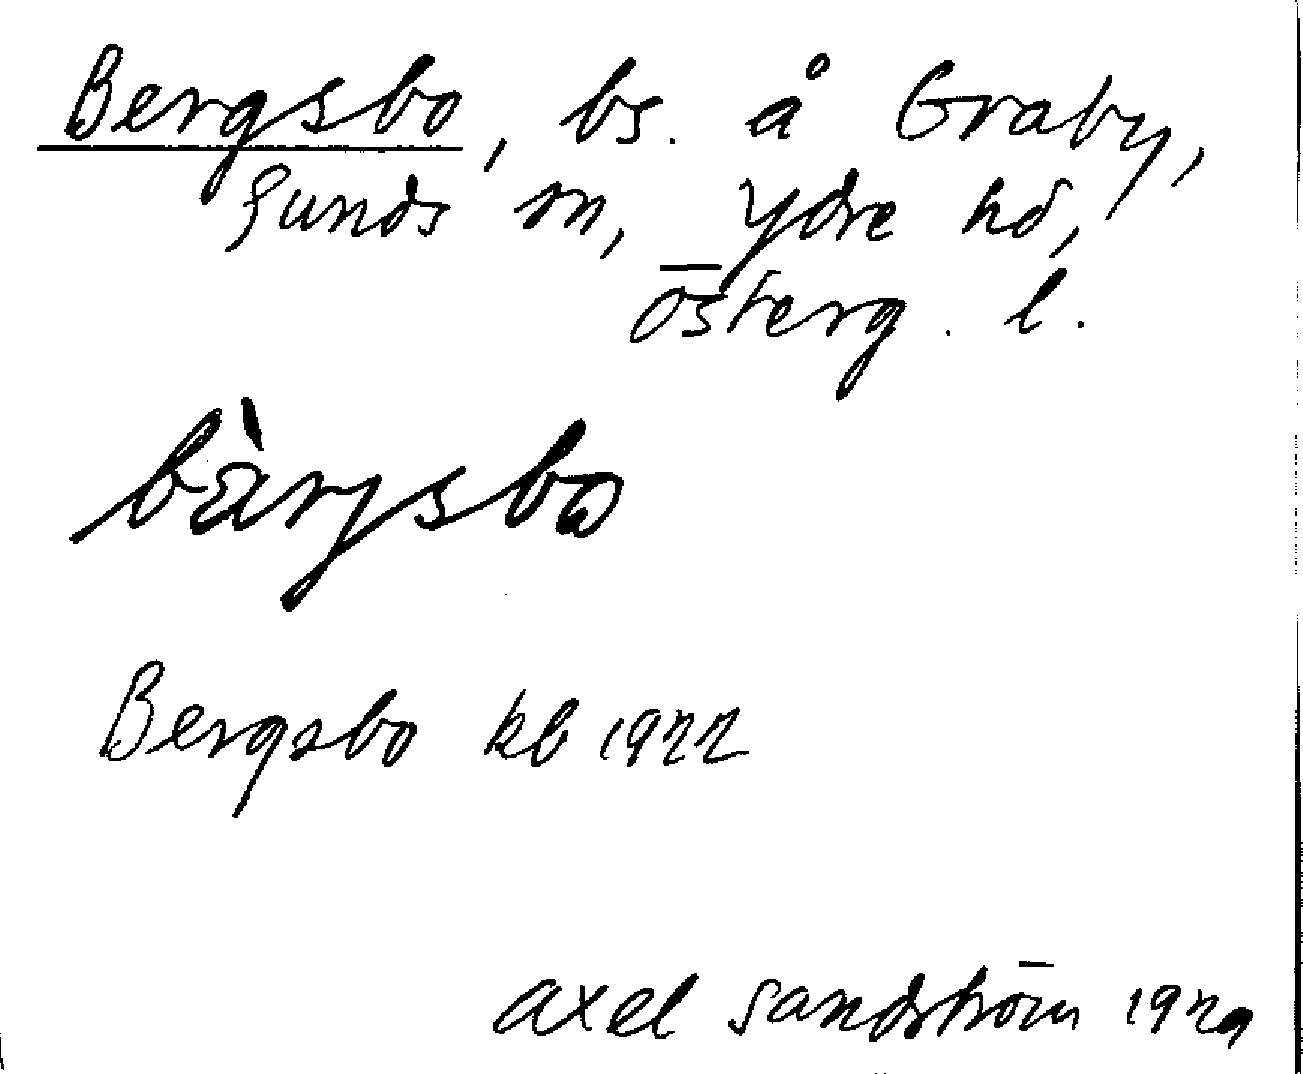 Bergsbo, bs. å Graby,
Sunds sn, Ydre hd,
Österg. l.
bàrgsbo
Bergsbo kb 1922
Axel Sandström 1929